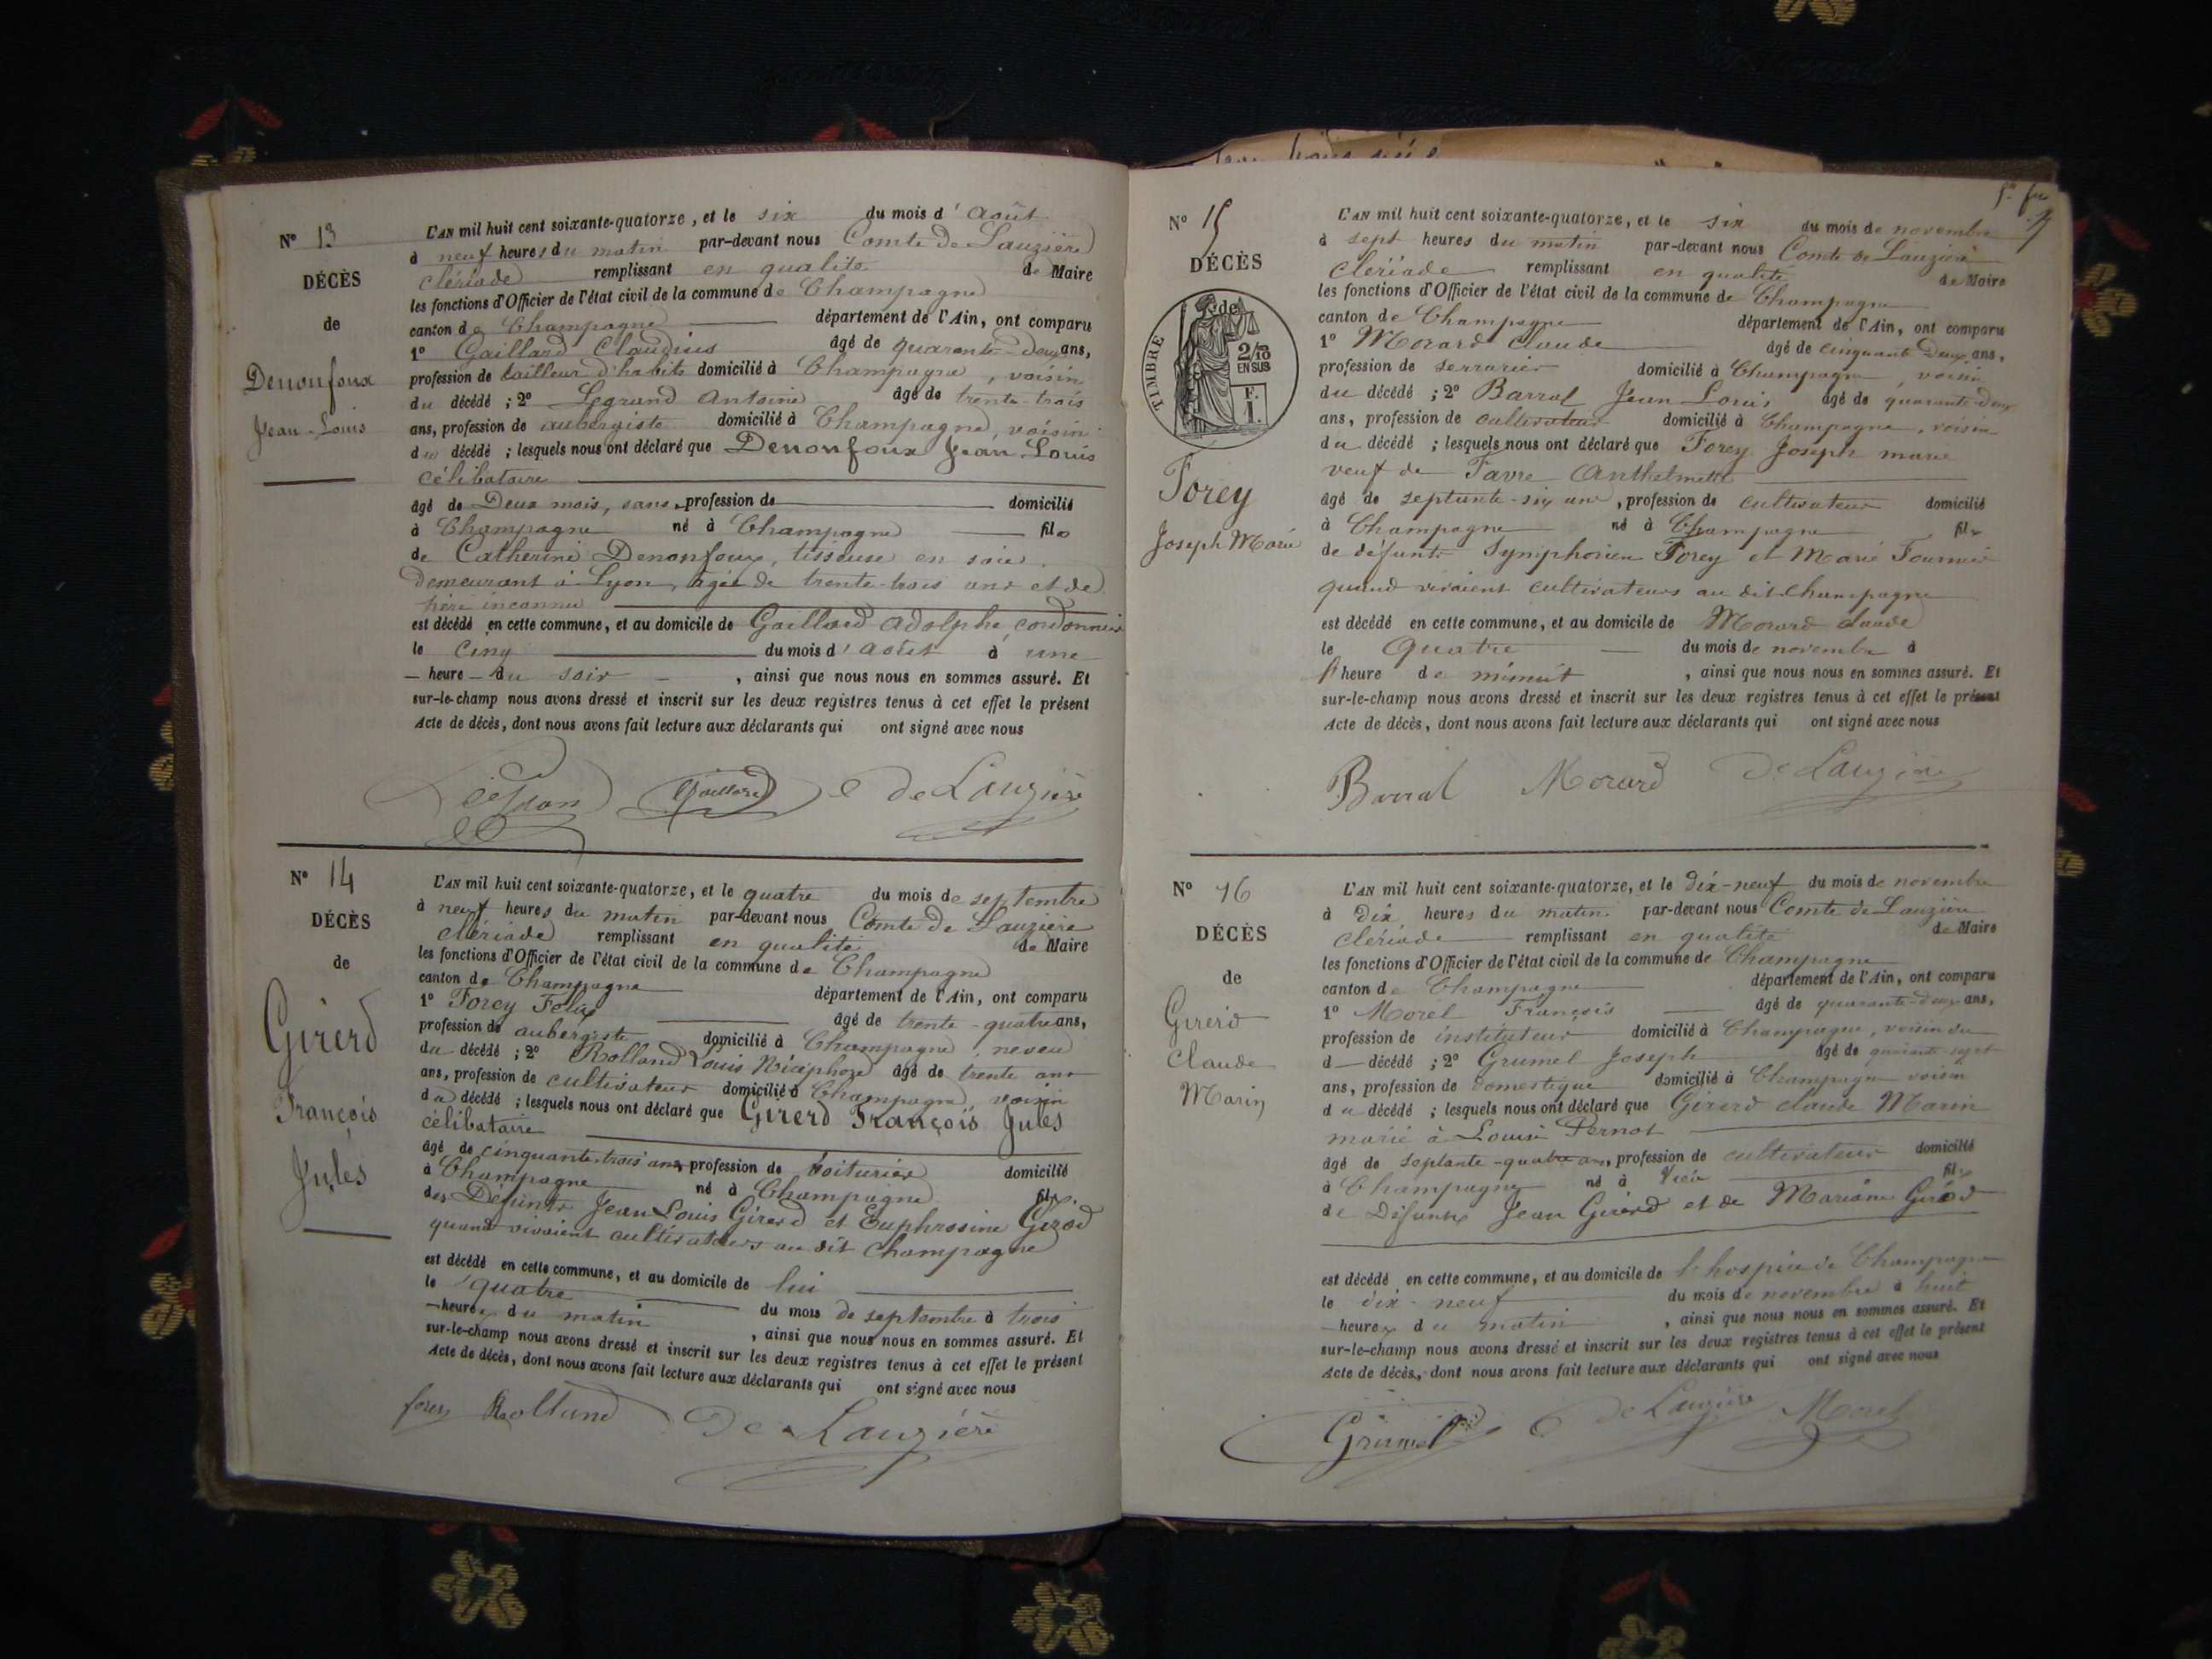 Nº 13
DÉCÈS
de
Denonfoux
Jean-Louis
L'AN mil huit cent soixante-quatorze, et le six du mois d'Août
à neuf heures du matin par-devant nous Comte De Lauzière
clériade remplissant en qualité de Maire
les fonctions d'Officier de l'état civil de la commune de Champagne
canton de Champagne département de l'Ain, ont comparu
1º Gaillard Claudius âgé de quarante-deux ans,
profession de tailleur d'habits domicilié à Champagne, voisin
du décédé ; 2º Legrand Antoine âgé de trente-trois
ans, profession de aubergiste domicilié à Champagne, voisin
du décédé ; lesquels nous ont déclaré que Denonfoux Jean Louis
célibataire
âgé de Deux mois, sans profession de domicilié
à Champagne né à Champagne fils
de Catherine Denonfoux, tisseuse en soie
demeurant à Lyon, âgée de trente-trois ans et de
père inconnu
est décédé en cette commune, et au domicile de Gaillard Adolphe, cordonnier
le Cinq du mois d'Août à une
heure du soir, ainsi que nous nous en sommes assuré. Et
sur-le-champ nous avons dressé et inscrit sur les deux registres tenus à cet effet le présent
Acte de décès, dont nous avons fait lecture aux déclarants qui ont signé avec nous
Gaillard De Lauzière
Nº 14
DÉCÈS
de
Girerd
François
Jules
L'AN mil huit cent soixante-quatorze, et le quatre du mois de septembre
à neuf heures du matin par-devant nous Comte De Lauzière
clériade remplissant en qualité de Maire
les fonctions d'Officier de l'état civil de la commune de Champagne
canton de Champagne département de l'Ain, ont comparu
1º Forey Félix âgé de trente-quatre ans,
profession de aubergiste domicilié à Champagne neveu
du décédé ; 2º Rolland Louis âgé de trente ans
ans, profession de cultivateur domicilié à Champagne, voisin
du décédé ; lesquels nous ont déclaré que Girerd François Jules
célibataire
âgé de cinquante-trois ans profession de voiturier domicilié
à Champagne né à Champagne fils
des Défunts Jean Louis Girerd et Euphrosine Girod
quand vivaient cultivateurs au dit Champagne
est décédé en cette commune, et au domicile de lui
le quatre du mois de septembre à trois
heures du matin, ainsi que nous nous en sommes assuré. Et
sur-le-champ nous avons dressé et inscrit sur les deux registres tenus à cet effet le présent
Acte de décès, dont nous avons fait lecture aux déclarants qui ont signé avec nous
forey Rolland De Lauzière
Nº 15
DÉCÈS
de
TIMBRE
2/10
EN SUS
F.
1.
Forey
Joseph Marie
L'AN mil huit cent soixante-quatorze, et le six du mois de novembre
à sept heures du matin par-devant nous Comte de Lauzière
clériade remplissant en qualité de Maire
les fonctions d'Officier de l'état civil de la commune de Champagne
canton de Champagne département de l'Ain, ont comparu
1º Morard Claude âgé de cinquante Deux ans,
profession de serrurier domicilié à Champagne, voisin
du décédé ; 2º Barral Jean Louis âgé de quarante-deux
ans, profession de cultivateur domicilié à Champagne, voisin
du décédé ; lesquels nous ont déclaré que Forey Joseph marie
veuf de Favre Anthelmette
âgé de septante-six ans, profession de cultivateur domicilié
à Champagne né à Champagne fils
de défunts Symphorien Forey et Marie Fournier
quand vivaient cultivateurs au dit champagne
est décédé en cette commune, et au domicile de Morard claude
le Quatre du mois de novembre à
l'heure de minuit, ainsi que nous nous en sommes assuré. Et
sur-le-champ nous avons dressé et inscrit sur les deux registres tenus à cet effet le présent
Acte de décès, dont nous avons fait lecture aux déclarants qui ont signé avec nous
Barral Morard De Lauzière
Nº 16
DÉCÈS
de
Girerd
Claude
Marin
L'AN mil huit cent soixante-quatorze, et le dix-neuf du mois de novembre
à dix heures du matin par-devant nous Comte de Lauzière
clériade remplissant en qualité de Maire
les fonctions d'Officier de l'état civil de la commune de Champagne
canton de Champagne département de l'Ain, ont comparu
1º Morel François âgé de quarante-deux ans,
profession de instituteur domicilié à Champagne, voisin du
d décédé ; 2º Grumel Joseph âgé de quarante-sept
ans, profession de domestique domicilié à Champagne voisin
du décédé ; lesquels nous ont déclaré que Girerd claude Marin
marié à Louise Pernot
âgé de septante-quatre ans, profession de cultivateur domicilié
à Champagne né à Vieu fils
de Défunts Jean Girerd et de Mariane Girod
est décédé en cette commune, et au domicile de l'hospice de Champagne
le dix-neuf du mois de novembre à huit
heures du matin, ainsi que nous nous en sommes assuré. Et
sur-le-champ nous avons dressé et inscrit sur les deux registres tenus à cet effet le présent
Acte de décès, dont nous avons fait lecture aux déclarants qui ont signé avec nous
Grumel De Lauzière Morel